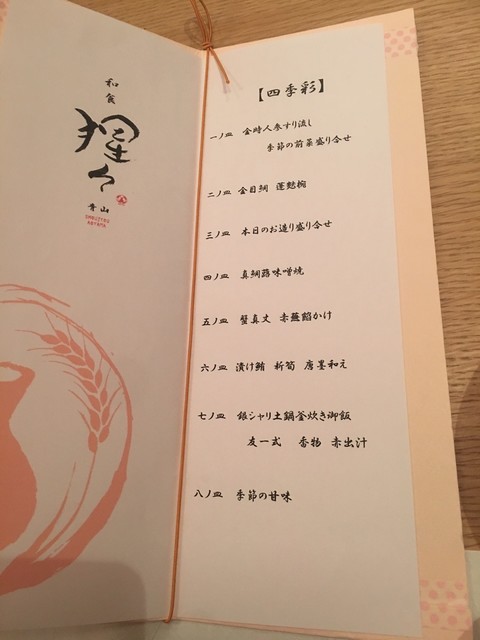 和食
猩々
青山
AOYAMA
【四季彩】
一ノ皿 金時人参すり流し
季節の前菜盛り合せ
二ノ皿 金目鯛 蓬麩椀
三ノ皿 本日のお造り盛り合せ
四ノ皿 真鯛蕗味噌焼
五ノ皿 蟹真丈 赤蕪餡かけ
六ノ皿 漬け鮪 新筍 唐墨和え
七ノ皿 銀シャリ土鍋釜炊き御飯
友一式 香物 赤出汁
八ノ皿 季節の甘味